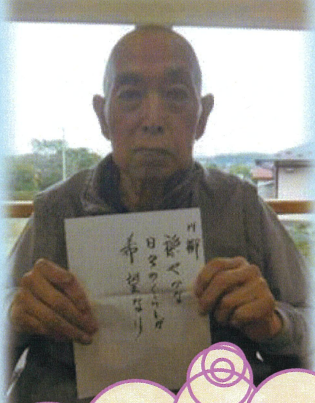 川柳
穏やかな
日々のくらしが
希望なり